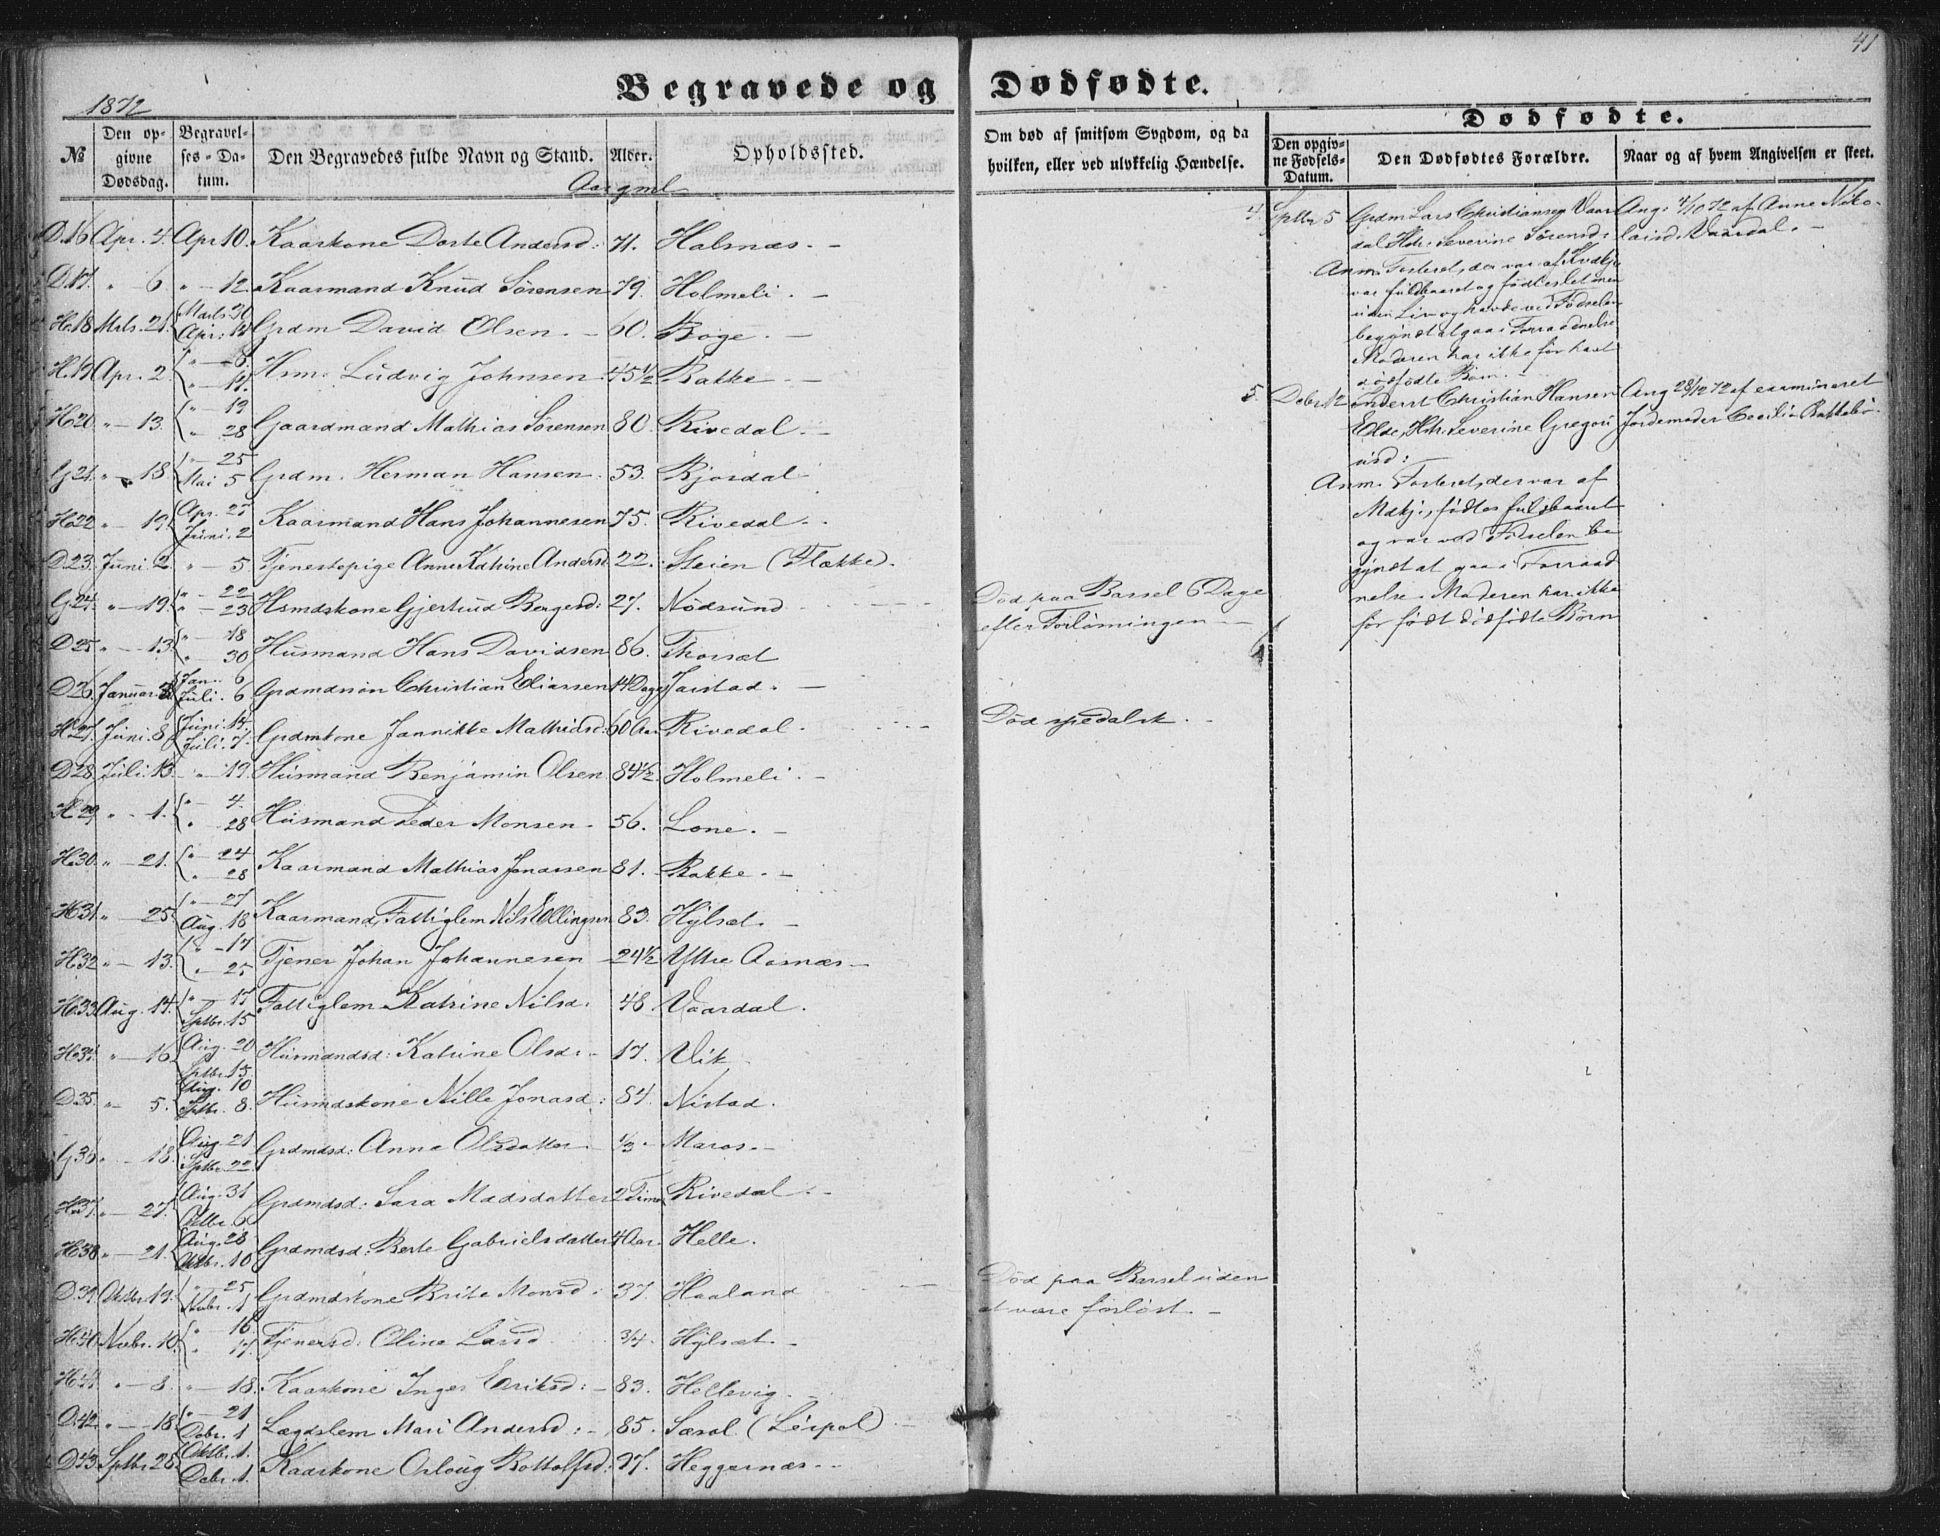 41
Begravede og Dødfødte.
1872
Dødfødte.
№
Den op-
givne
Dødsdag.
Begravel-
ses-Da-
tum.
Den Begravedes fulde Navn og Stand.
Alder.
Opholdssted.
Om død af smitsom Sygdom, og da
hvilken, eller ved ulykkelig Hændelse.
Den opgiv-
ne Fødsels-
Datum.
Den Dødfødtes Forældre.
Naar og af hvem Angivelsen er skeet.
Aar gml
D.16 Apr. 4. Apr 10. Kaarkone Dorte Andersd: 71. Halsnæs. -
D.17. " 6 " - 12. Kaarmand Knud Sørensen 79. Holmeli. -
H.18 Mrts. 21. Marts 30 Apr: 14 Grdm David Olsen. - 60. Bøge. -
H.19 Apr. 2. " - 6. " - 14. Hsm. Ludvig Johnsen 45½ Bakke. -
H.20. " - 13. " - 19 " 28 Gaardmand Mathias Sørensen 80. Rivedal. -
G.21. " - 18. " - 25 Mai 5 Grdm. Herman Hansen. 53. Bjordal
H.22 " - 19. Apr. 27 Juni. 2 Kaarmand Hans Johannesen 75. Rivedal.
D.23. Juni. 2. " - 5 Tjenestepige Anne Katrine Andersd 22. Steien (Flække).
G.24. " - 19. " - 22 " - 23 Hsmdskone Gjertrud Bergesd: 27. Nødsund
Død paa Barsel 6 Dage
efter Forløsningen -
D.25 " - 13. " - 18 " 30 Husmand Hans Davidsen 86. Thorsæt
D.26. Januar Jan. 6 Juli. 6 Grdmdsøn Christian Eliassen 14 Dage Jarstad. -
H.27. Juni. 8. Juni. 15 Juli. 7. Grdmkone Jannikke Mathiasd: 60 Aar Rivedal.
Død spedalsk. -
D.28. Juli. 13. " - 19. Husmand Benjamin Olsen 84½ Holmeli. -
H.29 " - 1. " - 4. " 28 Husmand Peder Monsen. 56. Lone. -
H.30. " - 21. " - 24 " 28 Kaarmand Mathias Jonassen 81. Bakke. -
H.31. " - 25. " - 27 Aug. 18 Kaarmand, Fattiglem Nils Ellingsen 83. Hylsæt. -
H.32 " - 13. " - 17 " 25 Tjener Johan Johannesen - 24½ Yttre Aasnæs. -
H.33 Aug. 14. " 15 Sptbr. 15 Fattiglem Katrine Nilsd: 48. Vaardal.
H.34. " - 16 Aug. 20 Sptbr. 15 Husmandsd: Katrine Olsd: - 17. Vik.
D.35. " - 5. Aug. 10 Sptbr. 8. Husmdskone Nille Jonasd: 84. Nistad.
G.36 " - 18. Aug. 21 Sptbr. 22 Grdmdsd: Anna Olsdatter ½ - Maros. -
H.37. " - 27. Aug. 31 Oktbr. 6 Grdmdsd: Sara Madsdatter 2 Timer Rivedal. -
H.38 " - 21. Aug. 28 Oktbr. 10 Grdmdsd: Berte Gabrielsdatter 4 Aar. Helle.
D.39. Oktbr. 19. " 25 Novbr. 1 Grdmdskone Brite Monsd: 37. Haaland
Død paa Barsel uden
at være forløst. -
H.40 Novbr. 10. " - 16 " 17. Tjenersd: Oline Larsd 3/4. Hylsæt. -
H.41. " - 8. " - 18. Kaarkone Inger Eriksd: - 83. Hellevig. -
D.42. " - 18. " - 21 Debr. 1 Lægdslem Mari Andersd: - 85. Sæsol (Leirpol)
D.43. Sptbr. 28. Oktbr. 1. Debr. 1. Kaarkone Orloug Bottolfsd: 97. Heggernæs. -
4. Sptbr 5 Grdm Lars Christiansen Vaar
dal, Hst: Severine Sørensd:
Anm. Fosteret, der var af Kvdkj:
var fuldbaaret og fødtes let men
uden Liv og havde ved Fødselen
begyndt at gaa i Forraadnelse
Moderen har ikke før havt
dødfødte Børn. -
Ang: 4/10 72 af Anne Niko-
laisd. Vaardal. -
5. Debr. 12 Inderst Christian Hansen
Elde, Hst: Severine Gregori
usd:
Anm. Fosteret, der var af
Mdkj:, fødtes fuldbaaret
og var ved Fødselen be
gyndt at gaa i Forraad
nelse. Moderen har ikke
før født dødfødte Børn
Ang 28/12 72 af examineret
Jordemoder Cecilie Bakkebø